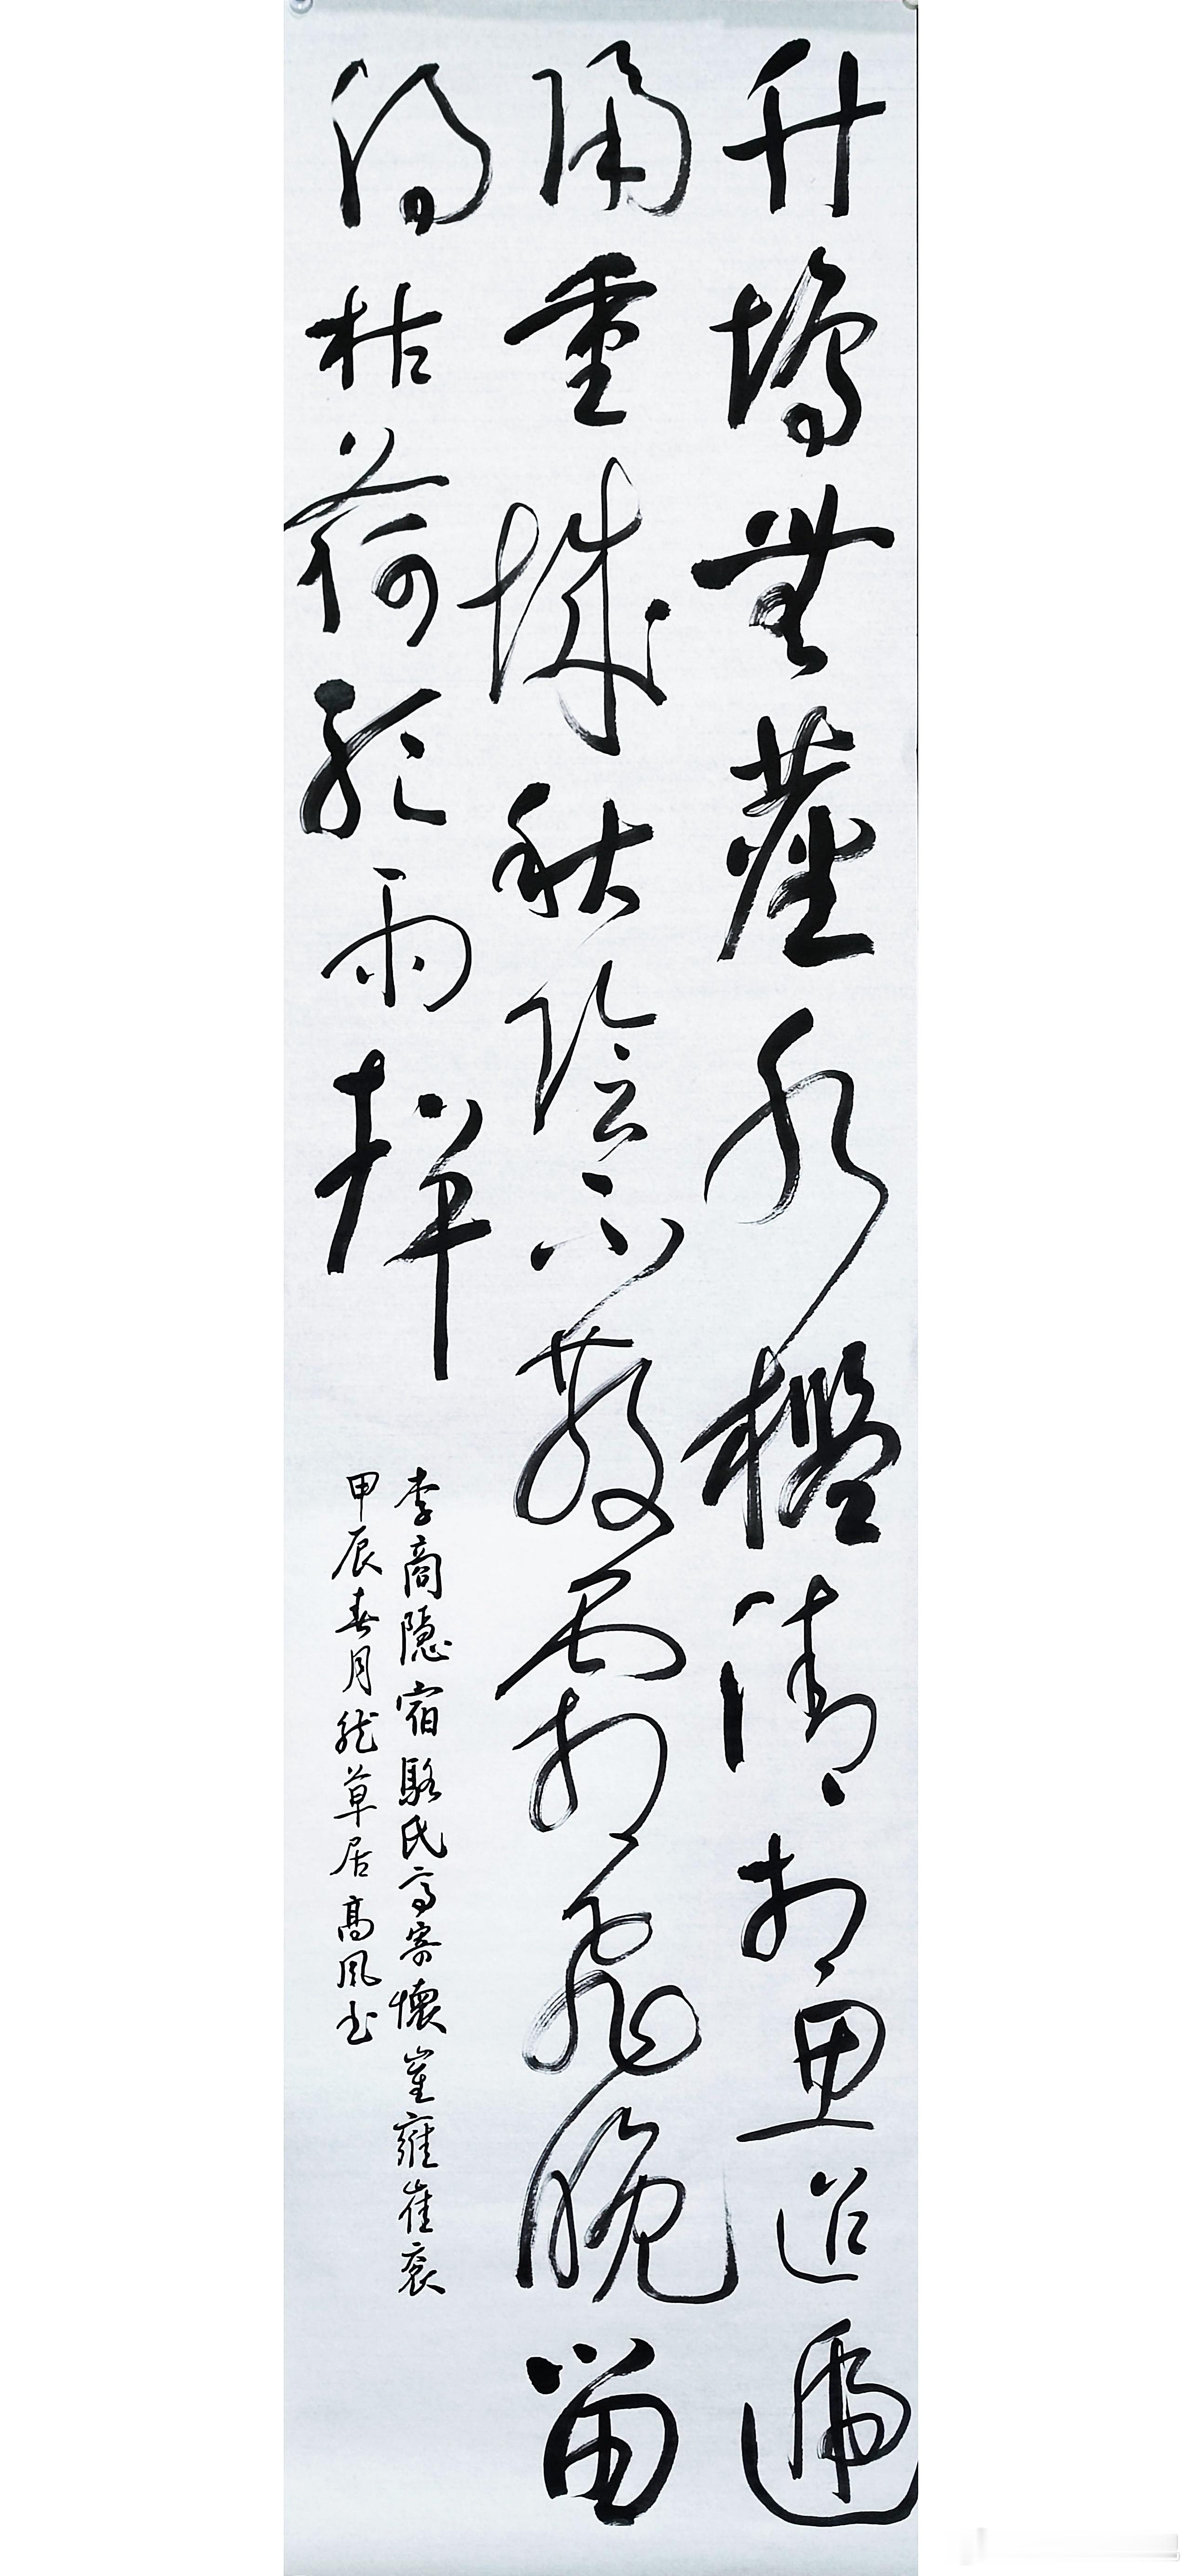 竹塢無塵水檻清相思迢遞
隔重城秋陰不散霜飛晚留
得枯荷聽雨聲
李商隱宿駱氏亭寄懷崔雍崔袞
甲辰春月草居高風书